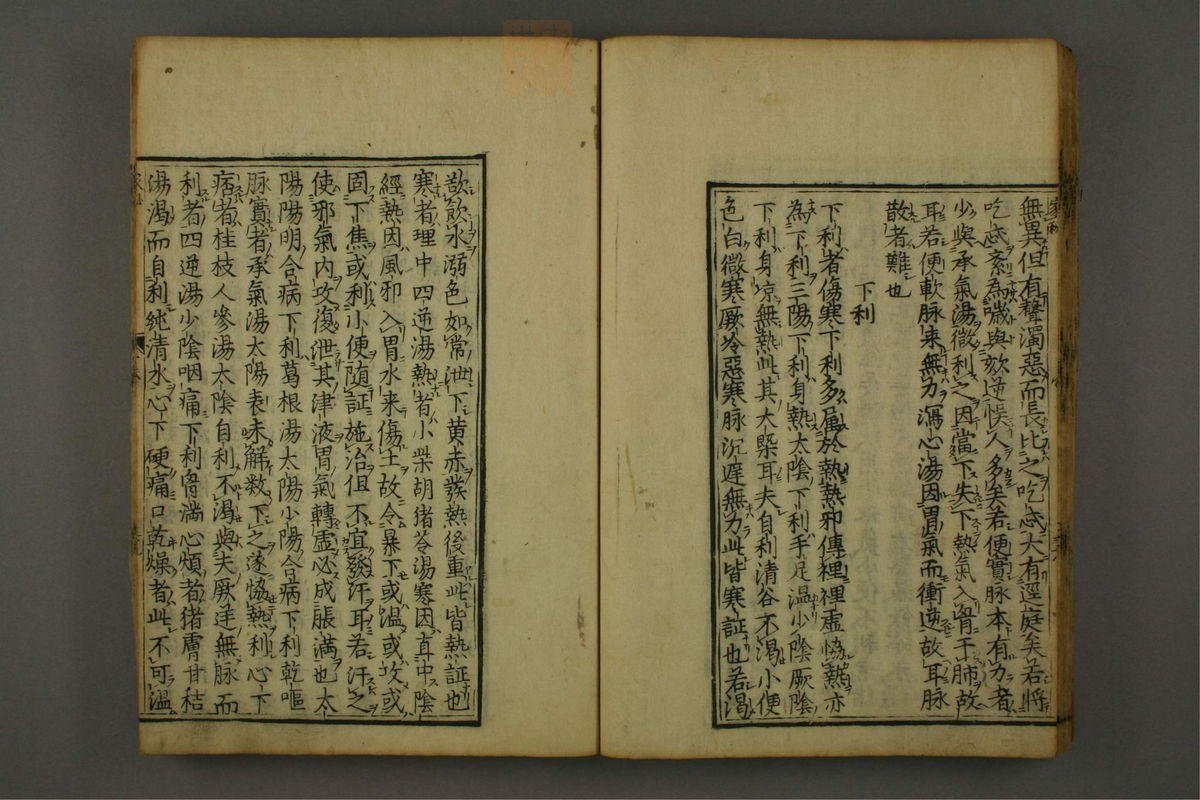 無異但有聲濁惡而長比之吃忒大有逕庭矣若將
吃忒紊為噦與欬逆悞人多矣若便實脉本有力者
少與承氣湯微利之因當下失下熱氣入胃干肺故
耳若便軟脉来無力瀉心湯因胃氣而衝逆故耳脉
散者難也
下利
下利者傷寒下利多属於熱熱邪傳裡裡虚恊熱亦
為下利三陽下利身熱太陰下利手足温少陰厥陰
下利身凉無熱此其大槩耳夫自利清谷不渴小便
色白微寒厥冷惡寒脉沉遲無力此皆寒証也若渴
欲飲水溺色如常泄下黄赤發熱後重此皆熱証也
寒者理中四逆湯熱者小柴胡猪苓湯寒因直中陰
經熱因風邪入胃水来傷土故令暴下或温或攻或
固下焦或利小便随証施治但不宜發汗耳若汗之
使邪氣内攻復泄其津液胃氣轉虚必成脹満也太
陽陽明合病下利葛根湯太陽小陽合病下利乾嘔
脉實者承氣湯太陽表未解数下之遂恊熱利心下
痞者桂枝人參湯太陰自利不渴與夫厥逆無脉而
利者四逆湯少陰咽痛下利胷満心煩者猪膚甘桔
湯渴而自利純清水心下硬痛口乾燥者此不可温